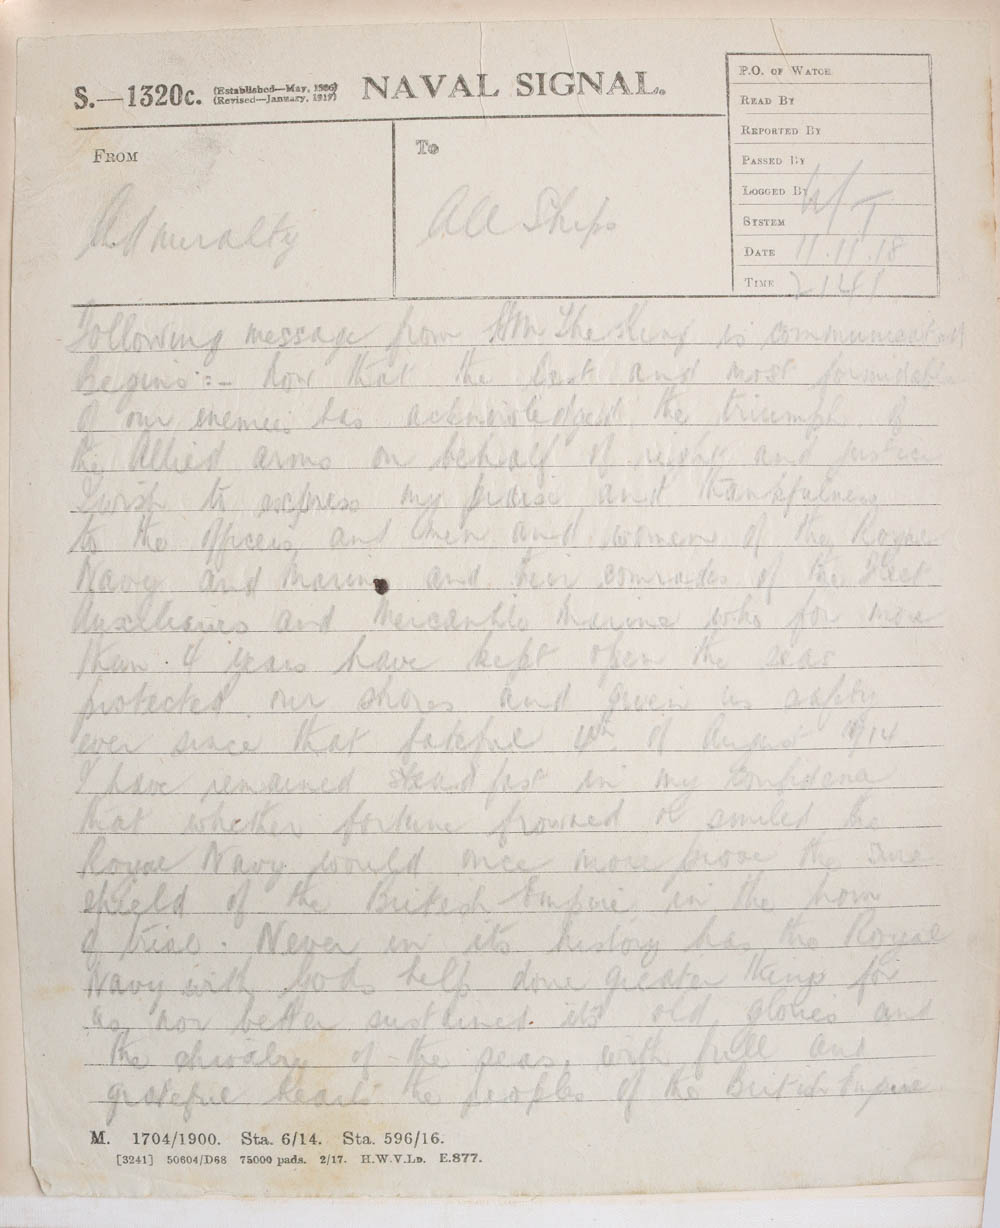 S.—1320c. (Established—May, 1906) (Revised—January, 1917) NAVAL SIGNAL.
P.O. OF WATCH
READ BY
REPORTED BY
PASSED BY
LOGGED BY
SYSTEM W/T
DATE 11.11.18
TIME 2141
FROM
Admiralty
To
All Ships
Following message from HM The King is communicated
Begins :- Now that the last and most formidable
of our enemies has acknowledged the triumph of
the Allied arms on behalf of right and justice
I wish to express my praise and thankfulness
to the Officers and men and women of the Royal
Navy and Marines and their comrades of the Fleet
Auxiliaries and Mercantile Marine who for more
than 4 years have kept open the seas
protected our shores and given us safety
ever since that fateful 4th of August 1914
I have remained steadfast in my confidence
that whether fortune frowned or smiled the
Royal Navy would once more prove the sure
shield of the British Empire in the hour
of trial. Never in its history has the Royal
Navy with Gods help done greater things for
us nor better sustained its old glories and
the chivalry of the seas. with full and
grateful hearts the peoples of the British Empire
M. 1704/1900. Sta. 6/14. Sta. 596/16.
[3241] 50604/D68 75000 pads. 2/17. H.W.V.LD. E.877.